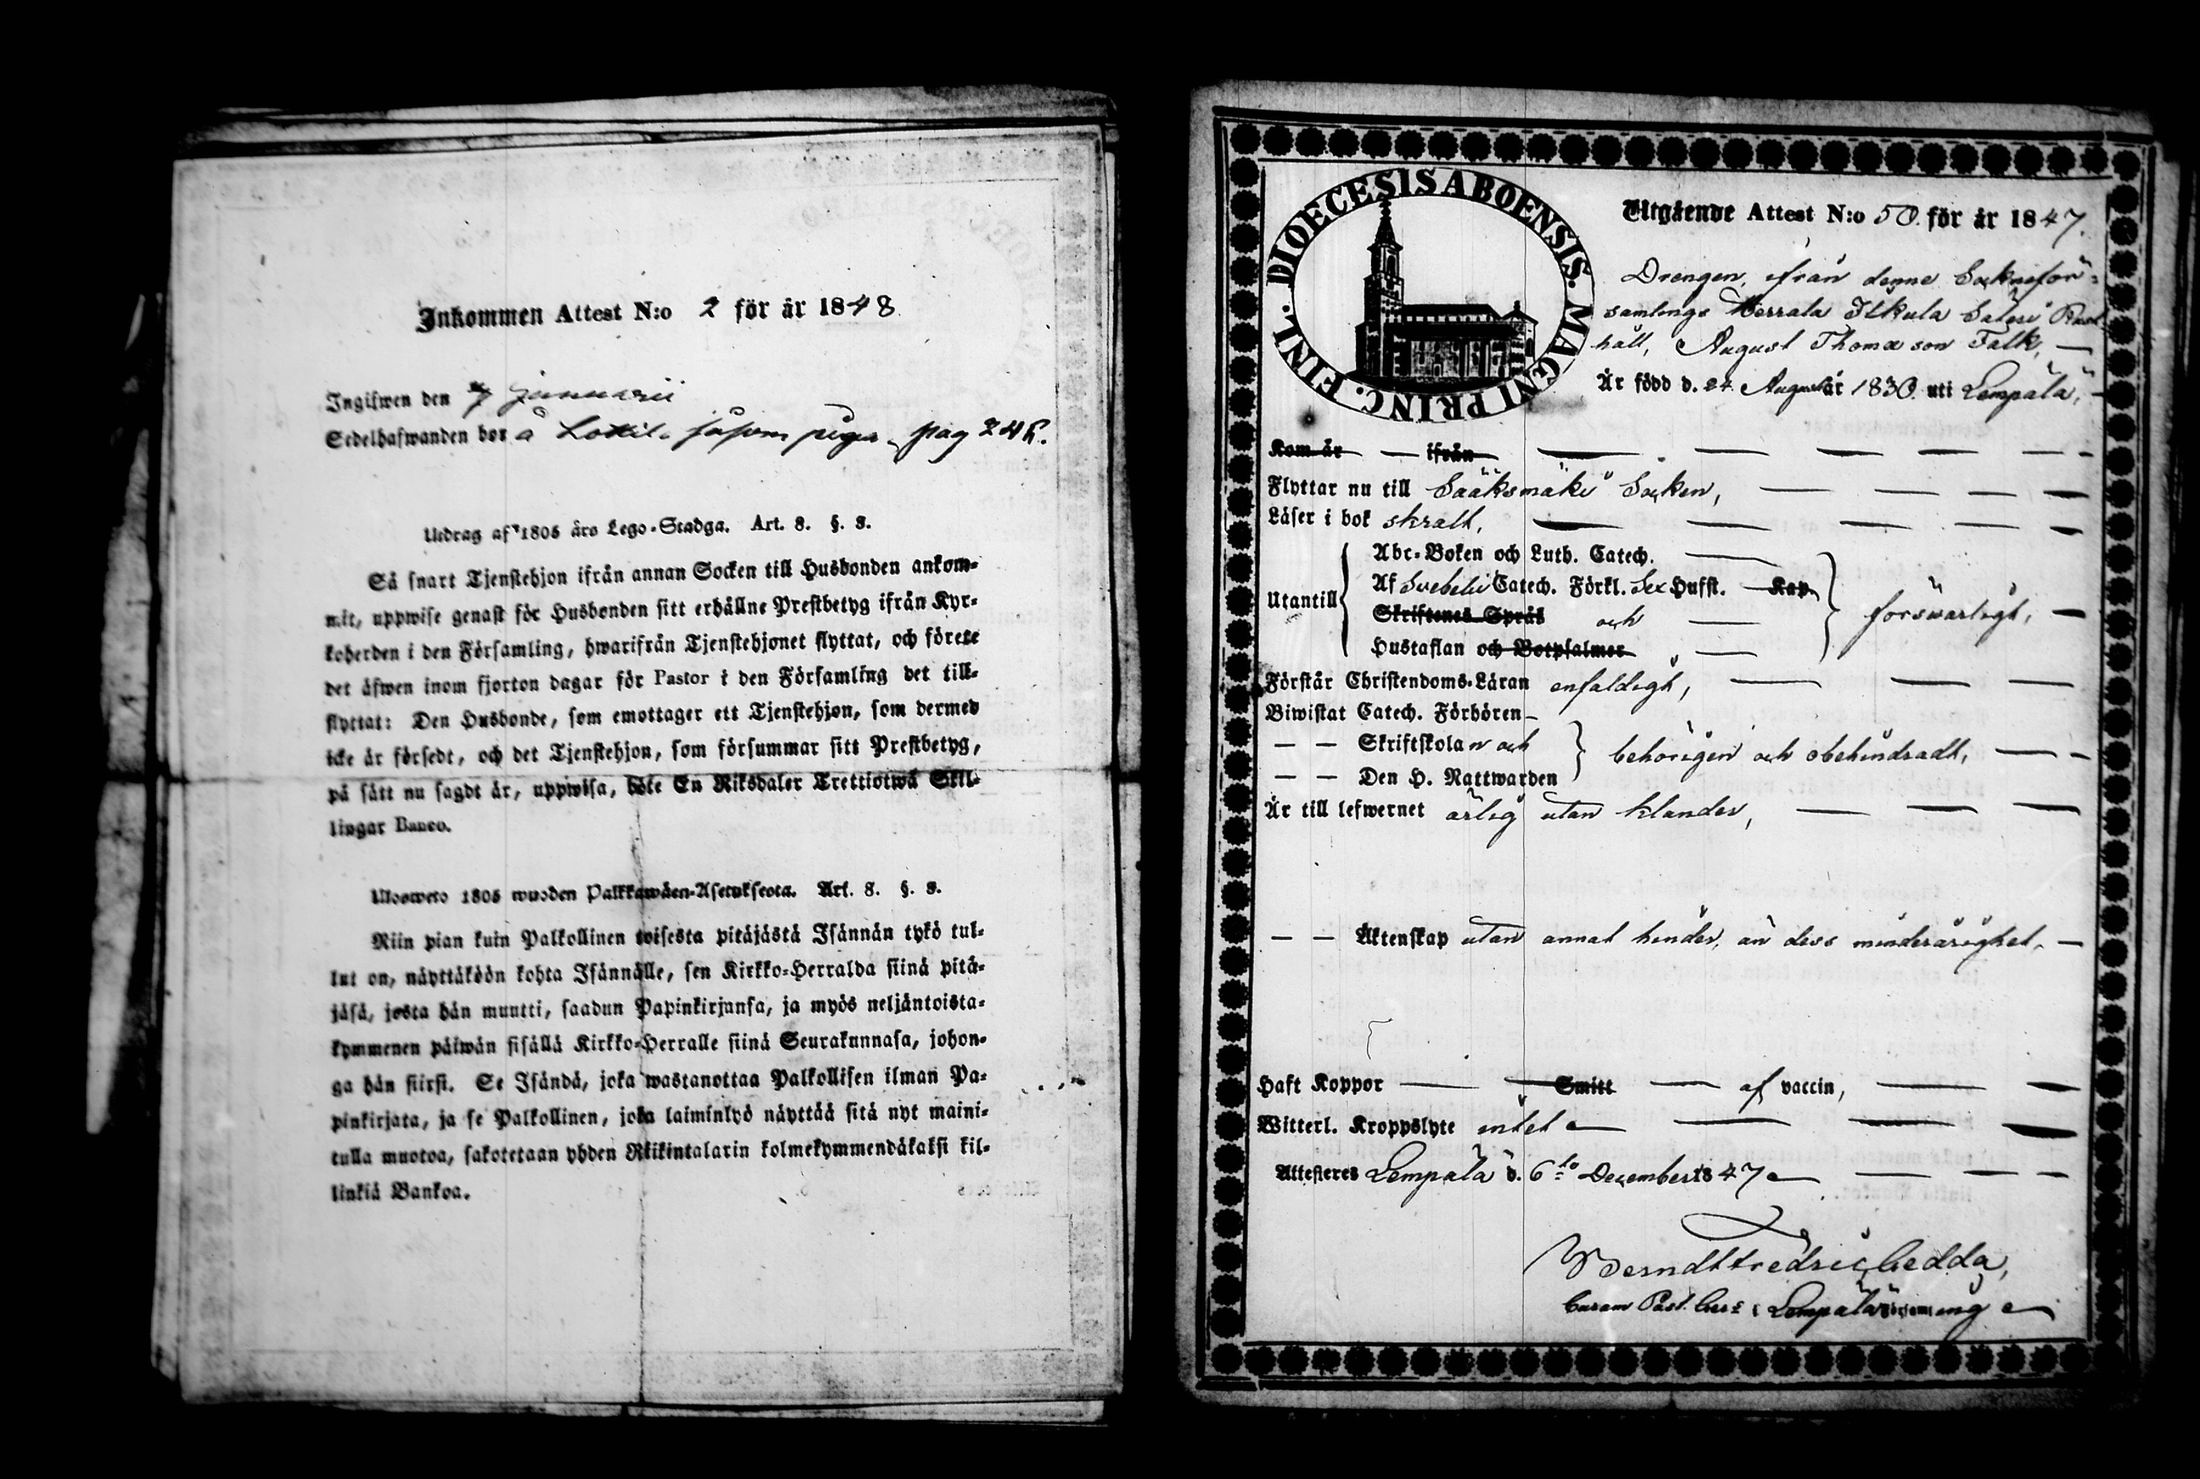 Inkommen Attest N:o 2 för år 1848
Ingifwen den 7 Januarii
Sedelhafwanden bor å såsom piga pag
Utdrag af 1805 års Lego-Stadga. Art. 8. §. 3.
Så snart Tjenstehjon ifrån annan Socken till Husbonden ankom-
mit, uppwise genast för Husbonden sitt erhållne Prestbetyg ifrån Kyr-
koherden i den Församling, hwarifrån Tjenstehjonet flyttat, och förete
det äfwen inom fjorton dagar för Pastor i den Församling det till-
flyttat: Den Husbonde, som emottager ett Tjenstehjon, som dermed
icke är försedt, och det Tjenstehjon, som försummar sitt Prestbetyg,
på sätt nu sagdt är, uppwisa, böte En Riksdaler Trettiotwå Skil-
lingar Banco.
Ulosweto 1805 wuoden Palkkawäen-Asetuksesta. Art. 8. §. 3.
Niin pian kuin Palkollinen toisesta pitäjästä Isännän tykö tul-
lut on, näyttäköön kohta Isännälle, sen Kirkko-Herralda siinä pitä-
jäsä, josta hän muutti, saadun Papinkirjansa, ja myös neljäntoista-
kymmenen päiwän sisällä Kirkko-Herralle siinä Seurakunnasa, johon-
ga hän siirsi. Se Isändä, joka wastanottaa Palkollisen ilman Pa-
pinkirjata, ja se Palkollinen, joka laiminlyö näyttää sitä nyt maini-
tulla muotoa, sakotetaan yhden Riikintalarin kolmekymmendäkaksi kil-
linkiä Bankoa.
DIOECESIS ABOENSIS. MAGNI PRINC. FINL.
Utgående Attest N:o 50 för år 1847.
Drengen, ifrån denne Sockneför-
samlings Herrala Ilkula Säteri Rust-
håll, August Thomæ son Falk,
Är född d. 24 August år 1830 uti Lempäla,
Kom år ifrån
Flyttar nu till Sääksmäki Socken,
Läser i bok skralt,
Abc-Boken och Luth. Catech.
Utantill Af Svebelii Catech. Förkl. Sex Hufst. Kap.
Skriftenes Språk och försvarligt,
Hustaflan och Botpsalmer
Förstår Christendoms-Läran enfaldigt,
Biwistat Catech. Förhören
— — Skriftskolan och behörigen och obehindradt,
— — Den H. Nattwarden
Är till lefwernet ärlig utan klander,
— — Äktenskap utan annat hinder, än dess minderårighet,
Haft Koppor Smitt af vaccin,
Witterl. Kroppslyte intet
Attesteres Lempäla d. 6:to December 1847
Berndt Fredric Cedda,
Lempäla